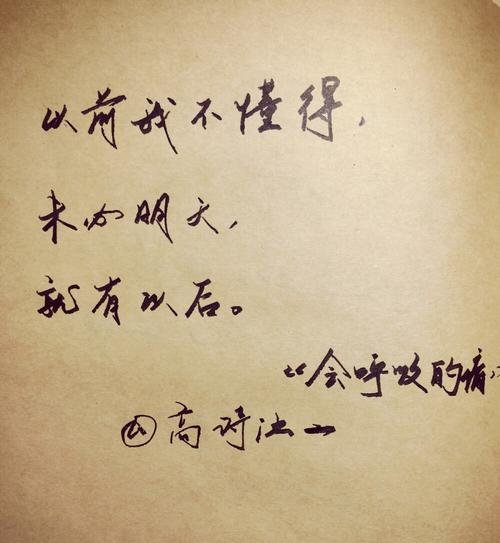 以前我不懂得,
未必明天,
就有以后。
“会呼吸的痛
@高诗